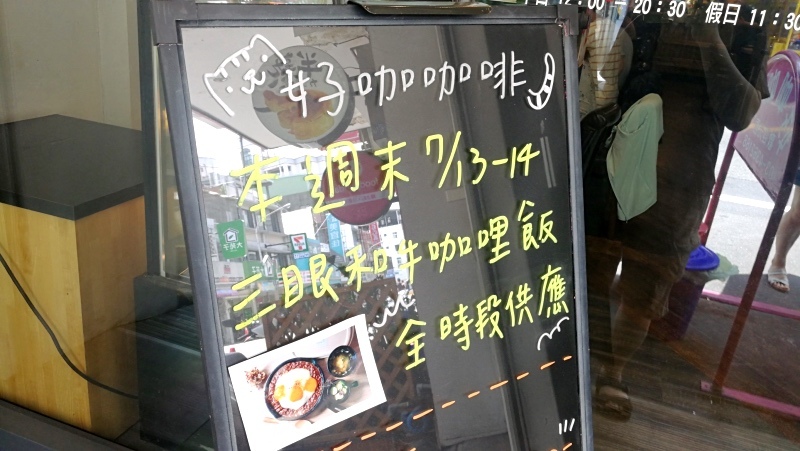 12:00 - 20:30 假日 11:30
好咖咖啡
本週末 7/13-14
三眼和牛咖哩飯
全時段供應